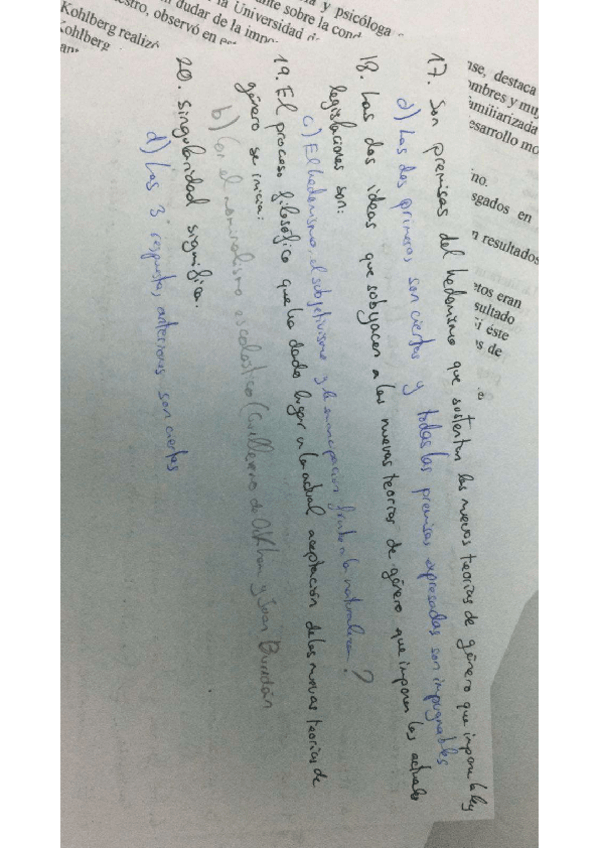 y psicóloga
sobre la cond
la Universidad
dudar de la
stro, observó en
Kohlberg realizó
Kohlberg
nse, destaca
ombres y muj
familiarizada
esarrollo mo
no.
sgados en
n resultados
etos eran
sultado
éste
s de
17. Son premisas del hedonismo que sustentan las nuevas teorías de género que impone la ley
d) Las dos primeras son ciertas y todas las premisas expresadas son impugnables
18. Las dos ideas que subyacen a las nuevas teorías de género que imponen las actuales
legislaciones son:
c) El hedonismo, el subjetivismo y la emancipación frente a la naturaleza?
19. El proceso filosófico que ha dado lugar a la actual aceptación de las nuevas teorías de
género se inicia:
b) Con el nominalismo escolástico (Guillermo de Okham y Juan Buridán
20. Singularidad significa:
d) Las 3 respuestas anteriores son ciertas